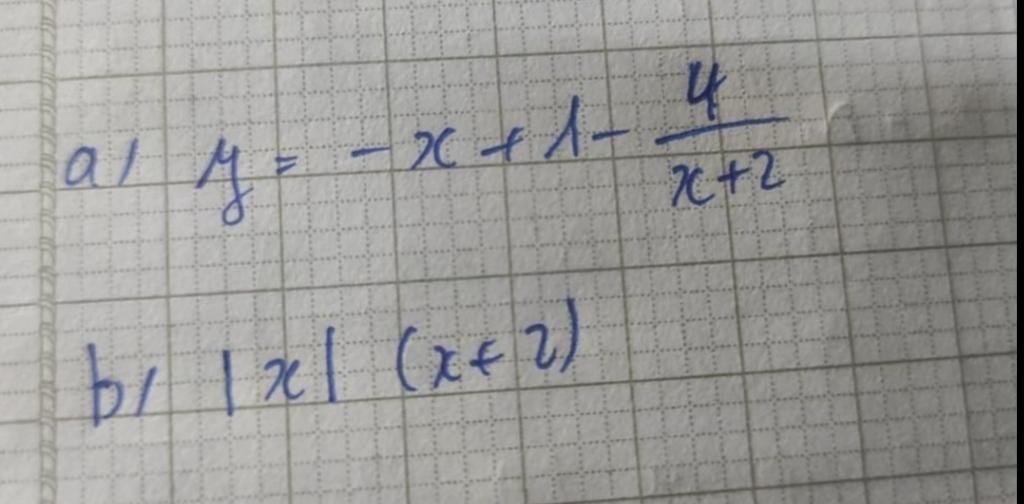 a) y = -x + 1 - 4/(x+2)
b) |x| (x+2)